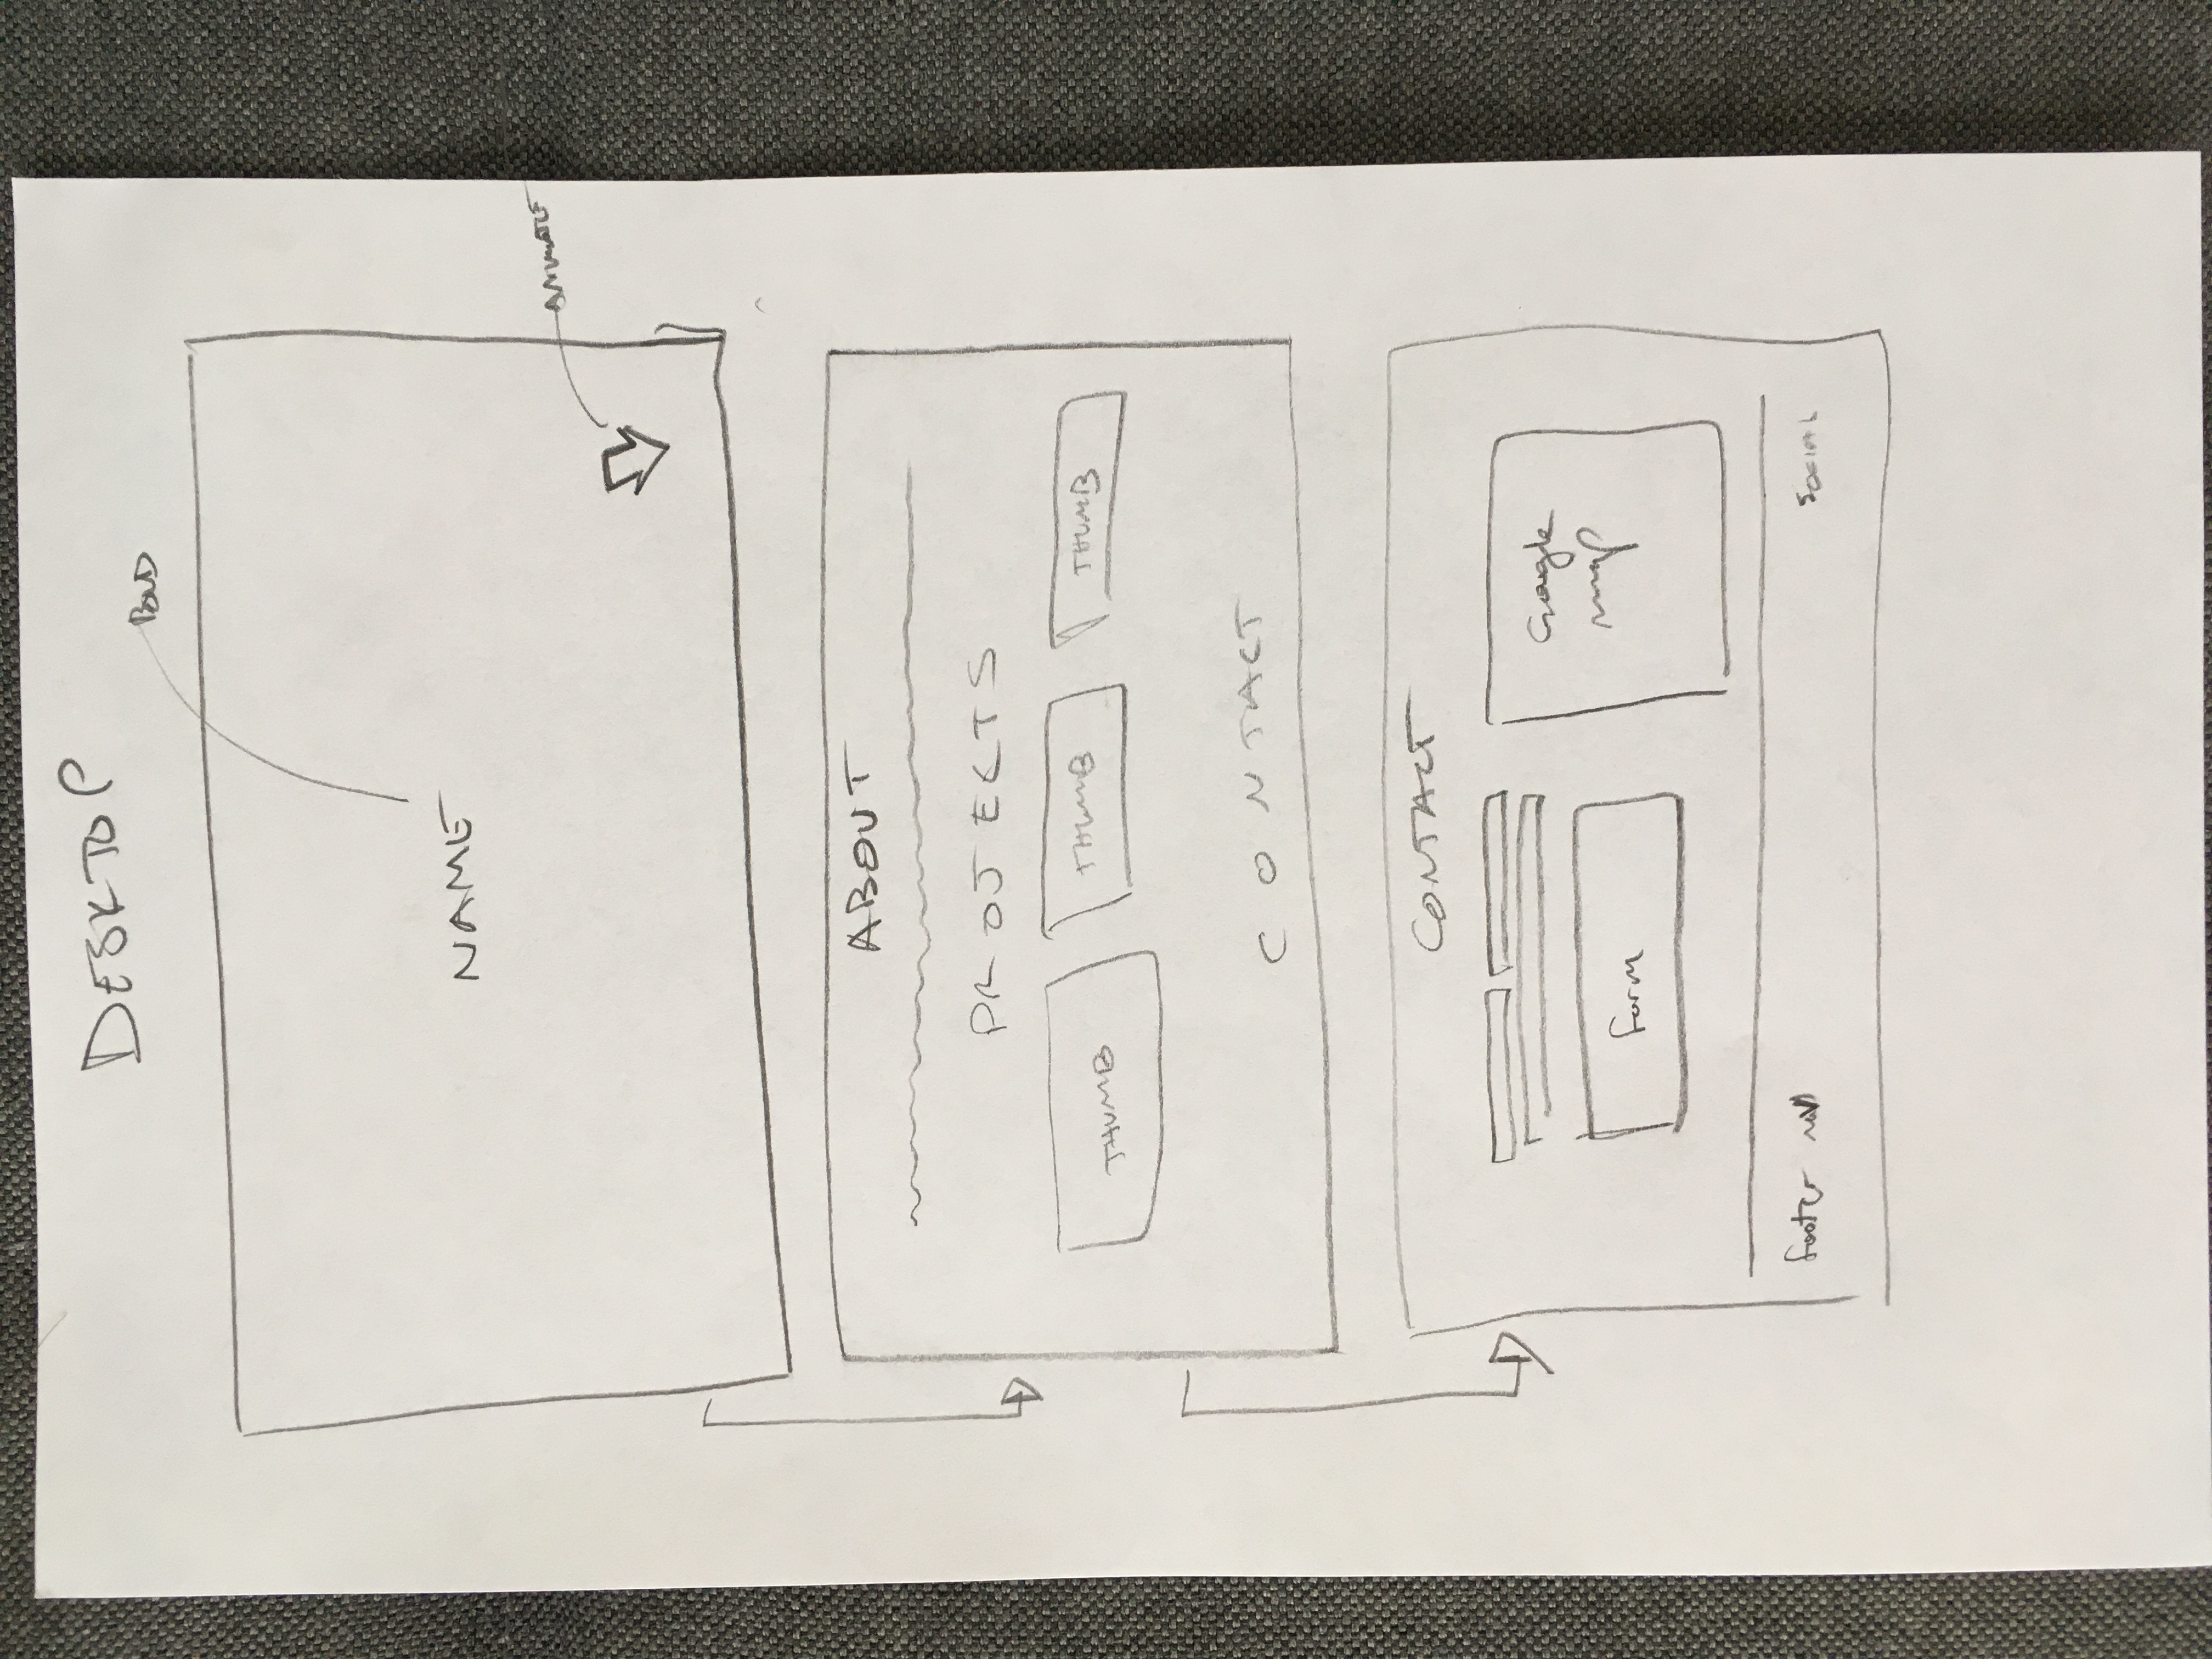 DESKTOP
BOLD
NAME
ANIMATE
ABOUT
PROJECTS
THUMB THUMB THUMB
CONTACT
CONTACT
Google
map
form
footer nav
SOCIAL